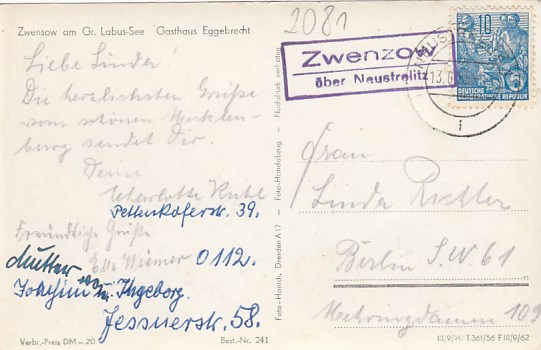 Zwensow am Gr. Labus-See Gasthaus Eggebrecht
2081
Liebe Linda!
Die herzlichsten Grüsse
vom schönen Mecklen-
burg sendet Dir
Deine
Charlotte
Pettenkoferstr. 39.
Freundliche Grüße
Ella Wiemer 0112.
Mutter
Joachim u. Ingeborg.
Jessnerstr. 58.
Verbr.-Preis DM –,20 Best.-Nr. 241
Foto-Handabzug - Nachdruck verboten
Dresden A 17
Zwenzow
über Neustrelitz
13.6
i
10
DEUTSCHE
DEMOKRATISCHE REPUBLIK
Frau
Linda Richter
Berlin S.W 61
Mehringdamm 109
III/9/20 T 361/56 F III/9/62